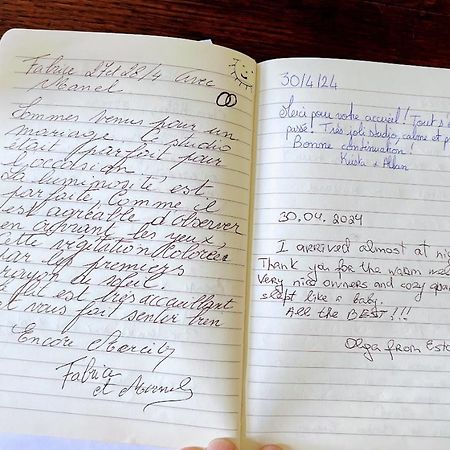 Fabrice 27 et 28/4 avec
Manel
Sommes venus pour un
mariage. Le studio
était parfait pour
l'occasion.
La luminosité est
parfaite, comme il
est agréable d'observer
en ouvrant les yeux,
cette végétation colorée
par les premiers
rayon de soleil.
L'acc est très accueillant
et vous fait sentir bien
Encore Merci
Fabrice
et Manel
30/4/24
Merci pour votre accueil! Tout s'
passé! Très joli studio, calme et p
Bonne continuation!
& Allan
30.04.2024
I arrived almost at nig
Thank you for the warm wel
Very nice owners and cozy apar
slept like a baby.
All the BEST!!!
Olga from Esto